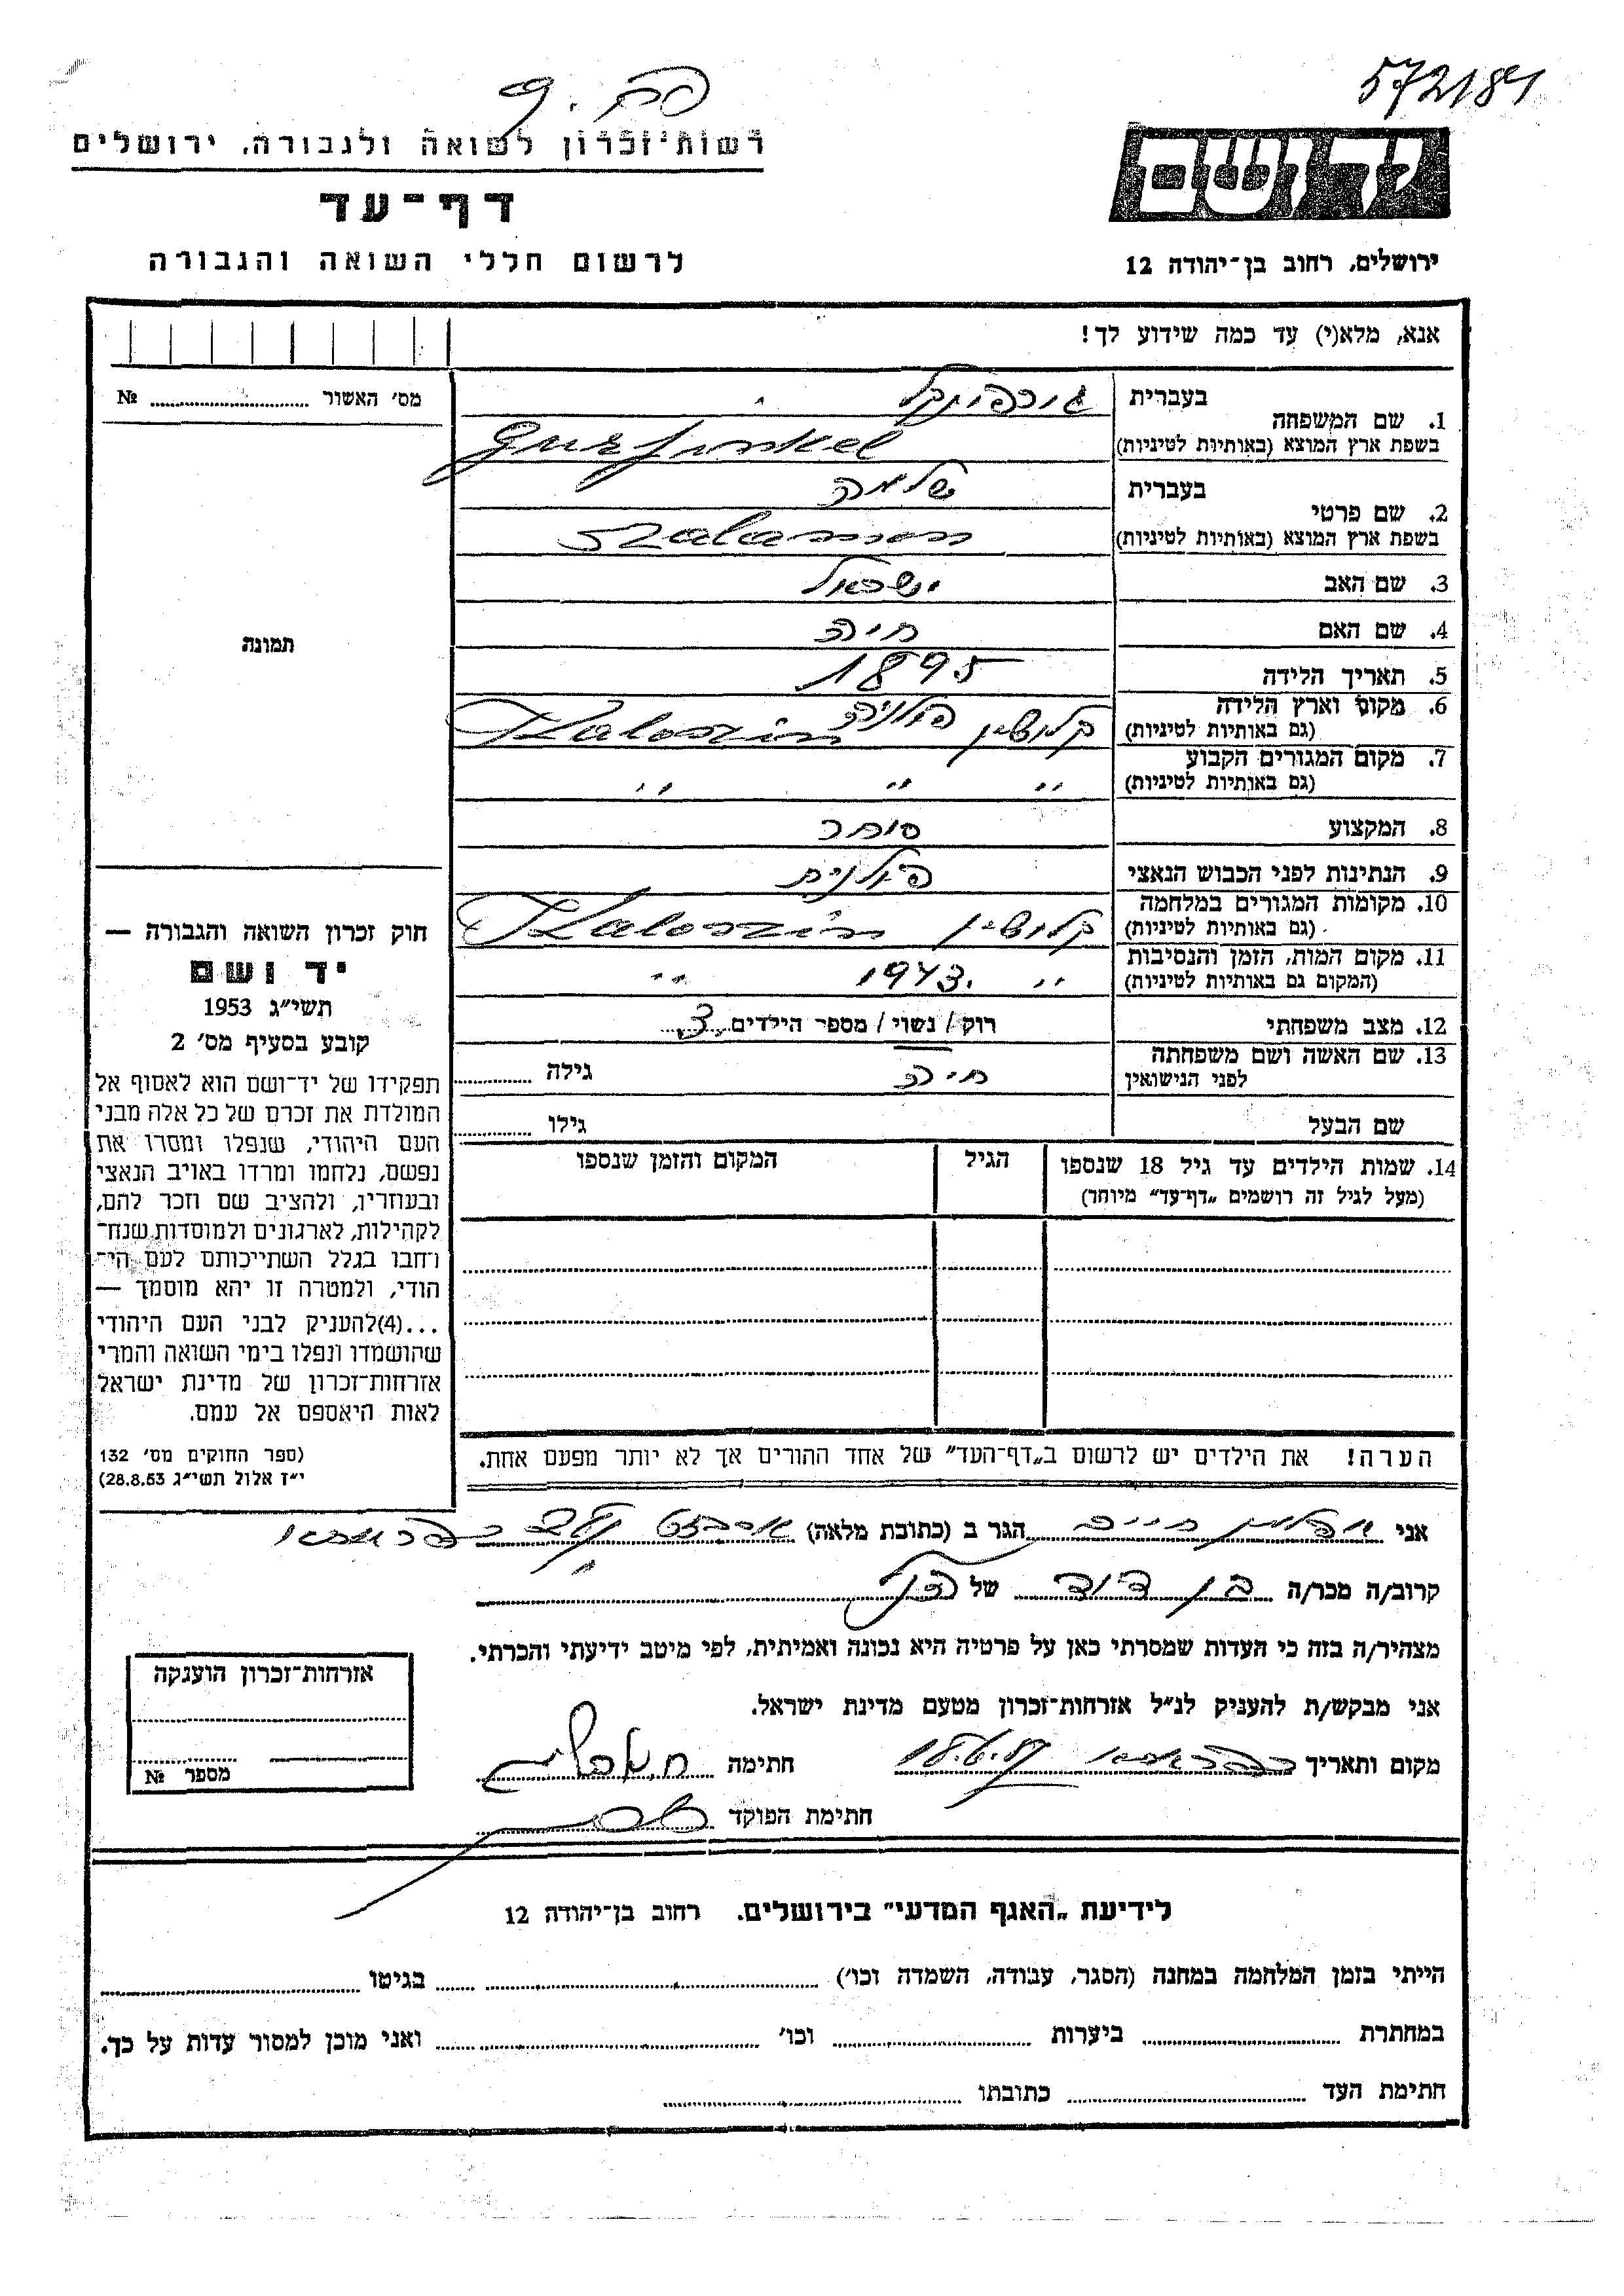 572181
רשות־זכרון לשואה ולגבורה, ירושלים
יד ושם
דף־עד
לרשום חללי השואה והגבורה
ירושלים, רחוב בן־יהודה 12
אנא, מלא(י) עד כמה שידוע לך!
מס' האשור № 
בעברית גורפינקל
1. שם המשפחה
בשפת ארץ המוצא (באותיות לטיניות) Gurfinkel
בעברית שלמה
2. שם פרטי
בשפת ארץ המוצא (באותיות לטיניות) Szalamon
3. שם האב ישראל
4. שם האם חיה
תמונה
5. תאריך הלידה 1895
6. מקום וארץ הלידה
(גם באותיות לטיניות) קלושין פולניה Kaloszin
7. מקום המגורים הקבוע
(גם באותיות לטיניות) " " "
8. המקצוע סוחר
9. הנתינות לפני הכבוש הנאצי פולנית
10. מקומות המגורים במלחמה
(גם באותיות לטיניות) קלושין Kaloszin
11. מקום המות, הזמן והנסיבות
(המקום גם באותיות לטיניות) " 1943 "
12. מצב משפחתי רוק / נשוי / מספר הילדים 3
13. שם האשה ושם משפחתה
לפני הנישואין חיה גילה
שם הבעל גילו
14. שמות הילדים עד גיל 18 שנספו הגיל המקום והזמן שנספו
(מעל לגיל זה רושמים „דף־עד" מיוחד)
הערה! את הילדים יש לרשום ב„דף־העד" של אחד ההורים אך לא יותר מפעם אחת.
חוק זכרון השואה והגבורה —
יד ושם
תשי"ג 1953
קובע בסעיף מס' 2
תפקידו של יד־ושם הוא לאסוף אל
המולדת את זכרם של כל אלה מבני
העם היהודי, שנפלו ומסרו את
נפשם, נלחמו ומרדו באויב הנאצי
ובעוזריו, ולהציב שם וזכר להם,
לקהילות, לארגונים ולמוסדות שנח־
רחבו בגלל השתייכותם לעם הי־
הודי, ולמטרה זו יהא מוסמך —
...(4)להעניק לבני העם היהודי
שהושמדו ונפלו בימי השואה והמרי
אזרחות־זכרון של מדינת ישראל
לאות היאספם אל עמם.
(ספר החוקים מס' 132
י"ז אלול תשי"ג 28.8.53)
אני חיים הגר ב (כתובת מלאה)
קרוב/ה מכר/ה בן דוד של הנ"ל
מצהיר/ה בזה כי העדות שמסרתי כאן על פרטיה היא נכונה ואמיתית, לפי מיטב ידיעתי והכרתי.
אני מבקש/ת להעניק לנ"ל אזרחות־זכרון מטעם מדינת ישראל.
מקום ותאריך חתימה
חתימת הפוקד
אזרחות־זכרון הוענקה
מספר №
לידיעת „האגף המדעי" בירושלים. רחוב בן־יהודה 12
הייתי בזמן המלחמה במחנה (הסגר, עבודה, השמדה וכו') בגיטו
במחתרת ביערות וכו' ואני מוכן למסור עדות על כך.
חתימת העד כתובתו